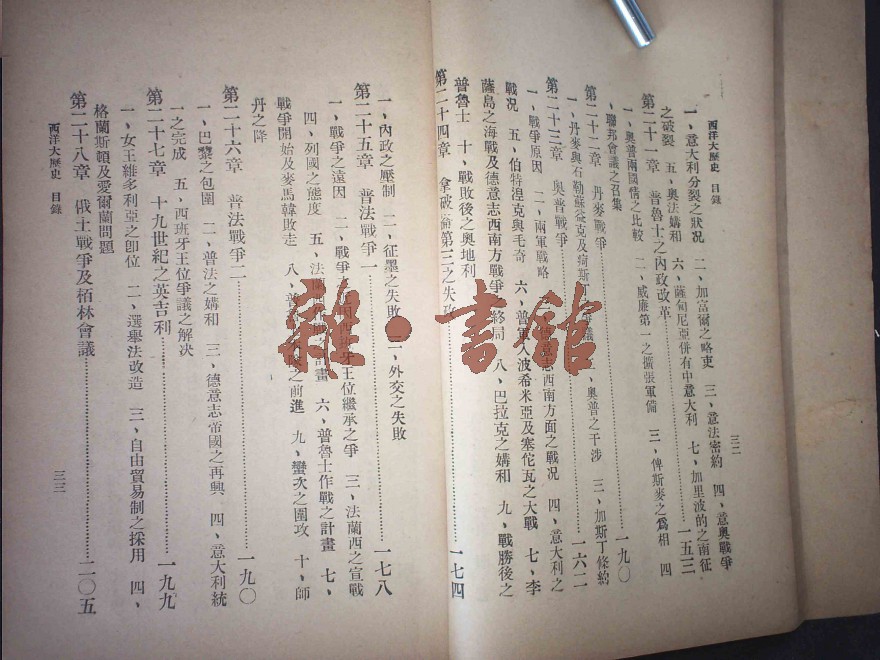 西洋大歷史 目錄 三二
一、意大利分裂之狀况 二、加富爾之略吏 三、意法密約 四、意奧戰爭
之破裂 五、奧法媾和 六、薩甸尼亞併有中意大利 七、加里波的之南征
第二十一章 普魯士之內政改革 一五三
一、奧普兩國情之比較 二、威廉第一之擴張軍備 三、俾斯麥之爲相 四
、聯邦會議之召集
第二十二章 丹麥戰爭 一九〇
一、丹麥與石勒蘇益克及 二、奧普之干涉 三、加斯丁條約
第二十三章 奧普戰爭 一六二
一、戰爭原因 二、兩軍戰略 意志西南方面之戰况 四、意大利之
戰况 五、伯特涅克與毛奇 六、普軍入波希米亞及塞佗瓦之大戰 七、李
薩島之海戰及德意志西南方戰爭之終局 八、巴拉克之媾和 九、戰勝後之
普魯士 十、戰敗後之奧地利
第二十四章 拿破崙第三之失政 一七四
一、內政之壓制 二、征墨之失敗 三、外交之失敗
第二十五章 普法戰爭一 一七八
一、戰爭之遠因 二、戰爭 因西班牙王位繼承之爭 三、法蘭西之宣戰
四、列國之態度 五、法蘭 作戰之計畫 六、普魯士作戰之計畫 七、
戰爭開始及麥馬韓敗走 八、普 之前進 九、蠻次之圍攻 十、師
丹之降
第二十六章 普法戰爭二 一九〇
一、巴黎之包圍 二、普法之媾和 三、德意志帝國之再興 四、意大利統
一之完成 五、西班牙王位爭議之解决
第二十七章 十九世紀之英吉利 一九九
一、女王維多利亞之卽位 二、選舉法改造 三、自由貿易制之採用 四、
格蘭斯頓及愛爾蘭問題
第二十八章 俄土戰爭及柏林會議 二〇五
西洋大歷史 目錄 三三
雜·書館